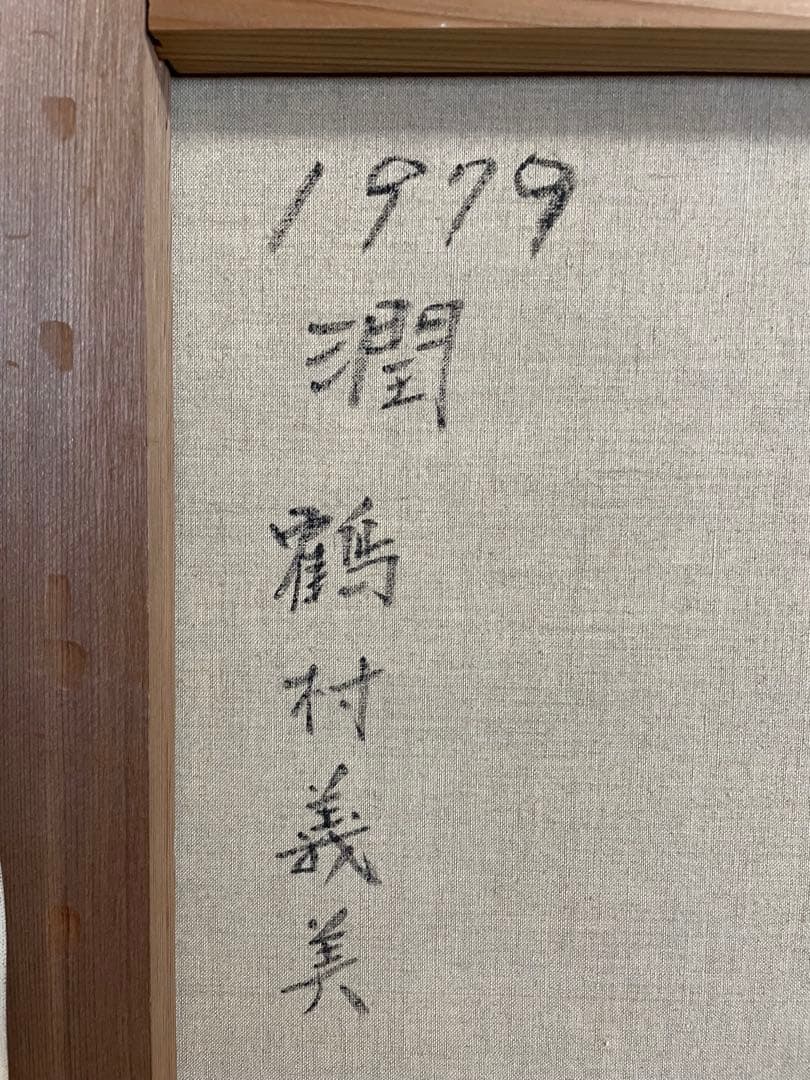 1979
潤
鶴村義美